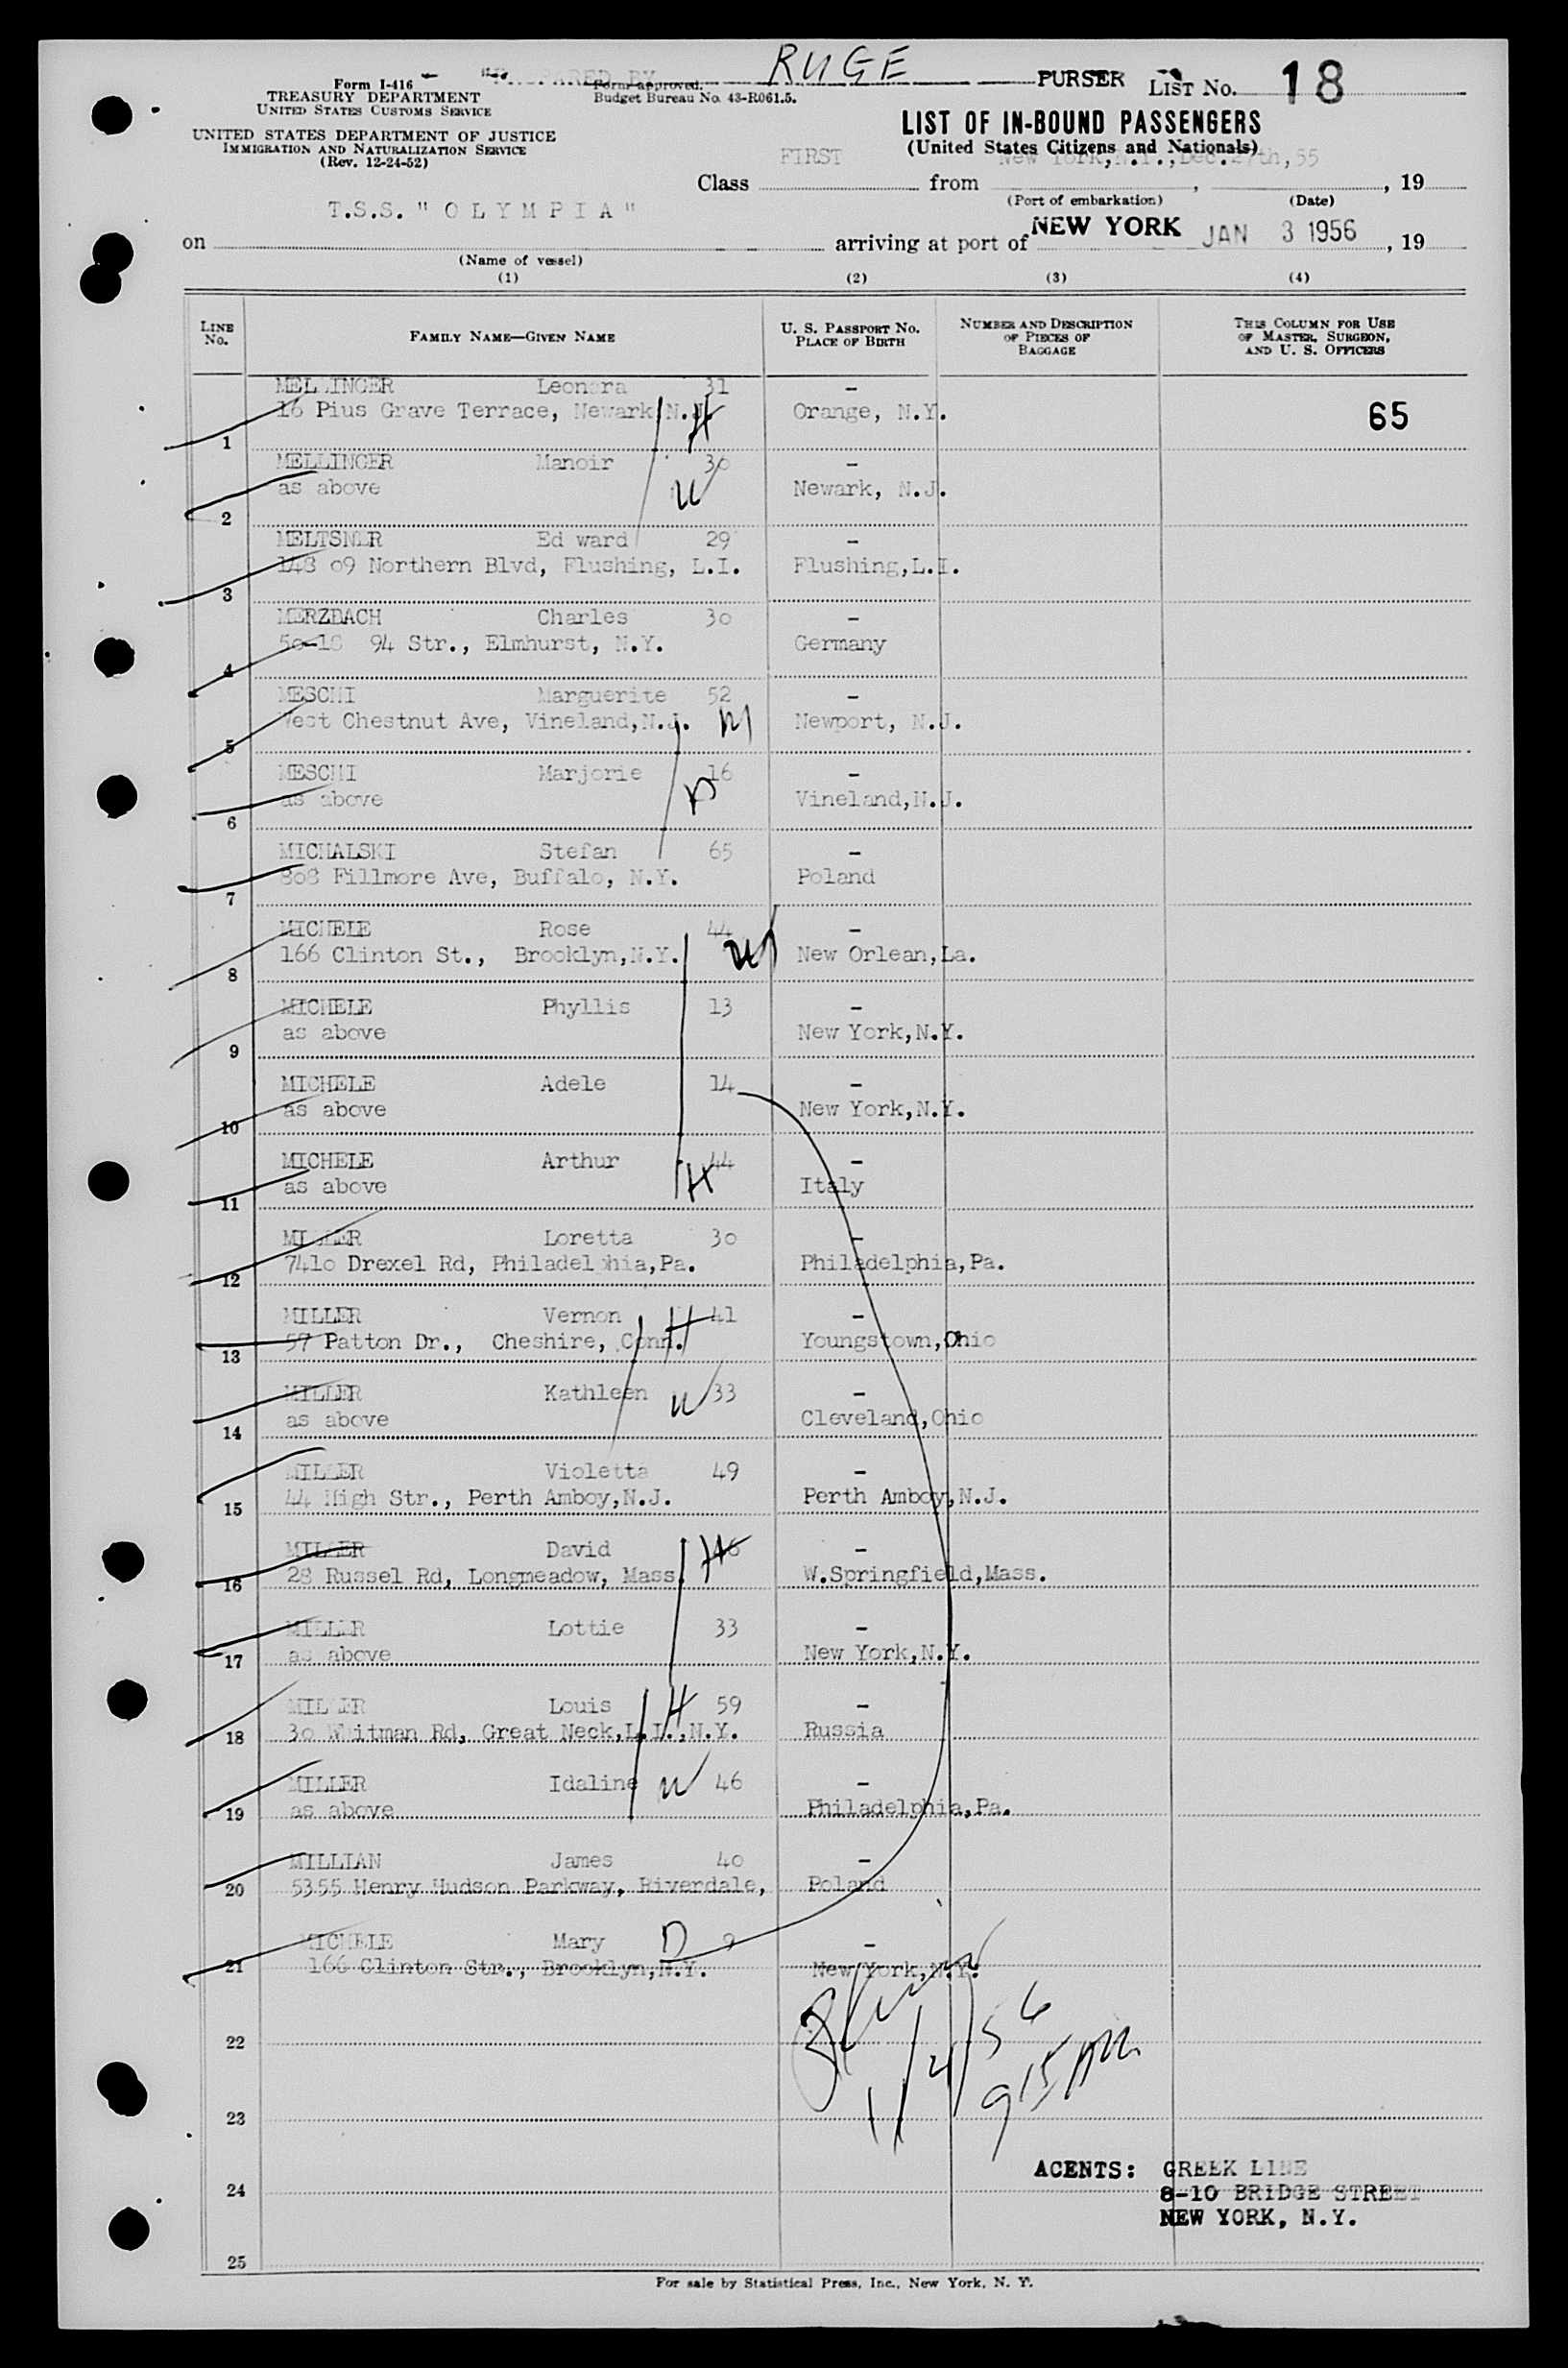 RUGE
PREPARED BY PURSER
Form I-416
TREASURY DEPARTMENT
UNITED STATES CUSTOMS SERVICE
Form approved.
Budget Bureau No. 43-R061.5.
LIST No. 18
UNITED STATES DEPARTMENT OF JUSTICE
IMMIGRATION AND NATURALIZATION SERVICE
(Rev. 12-24-52)
LIST OF IN-BOUND PASSENGERS
(United States Citizens and Nationals)
Class FIRST from New York, N.Y., Dec. 27th, 55, 19
(Port of embarkation) (Date)
on T.S.S. " O L Y M P I A " arriving at port of NEW YORK JAN 3 1956, 19
(Name of vessel)
(1) (2) (3) (4)
LINE No. FAMILY NAME—GIVEN NAME U. S. PASSPORT NO. PLACE OF BIRTH NUMBER AND DESCRIPTION OF PIECES OF BAGGAGE THIS COLUMN FOR USE OF MASTER, SURGEON, AND U. S. OFFICERS
MELLINGER Leonora 31 -
1 16 Pius Grave Terrace, Newark N.J. H Orange, N.Y. 65
MELLINGER Manoir 30 -
2 as above W Newark, N.J.
MELTSNER Ed ward 29 -
3 148 09 Northern Blvd, Flushing, L.I. Flushing,L.I.
MERZBACH Charles 30 -
4 50-18 94 Str., Elmhurst, N.Y. Germany
MESCHI Marguerite 52 -
5 West Chestnut Ave, Vineland,N.J. M Newport, N.J.
MESCHI Marjorie 16 -
6 as above D Vineland,N.J.
MICHALSKI Stefan 65 -
7 808 Fillmore Ave, Buffalo, N.Y. Poland
MICHELE Rose 44 -
8 166 Clinton St., Brooklyn,N.Y. W New Orlean,La.
MICHELE Phyllis 13 -
9 as above New York,N.Y.
MICHELE Adele 14 -
10 as above New York,N.Y.
MICHELE Arthur 44 -
11 as above H Italy
MILLER Loretta 30 -
12 7410 Drexel Rd, Philadelphia,Pa. Philadelphia,Pa.
MILLER Vernon H 41 -
13 57 Patton Dr., Cheshire, Conn. Youngstown,Ohio
MILLER Kathleen W 33 -
14 as above Cleveland,Ohio
MILLER Violetta 49 -
15 44 High Str., Perth Amboy,N.J. Perth Amboy,N.J.
MILLER David H 46 -
16 28 Russel Rd, Longmeadow, Mass. W.Springfield,Mass.
MILLER Lottie 33 -
17 as above New York,N.Y.
MILLER Louis H 59 -
18 30 Whitman Rd, Great Neck,L.I.,N.Y. Russia
MILLER Idaline W 46 -
19 as above Philadelphia,Pa.
MILLIAN James 40 -
20 5355 Henry Hudson Parkway, Riverdale, Poland
MICHELE Mary D 9 -
21 166 Clinton Str., Brooklyn,N.Y. New York,N.Y.
22
1/4/56
915 AM
23
AGENTS: GREEK LINE
24 8-10 BRIDGE STREET
NEW YORK, N.Y.
25
For sale by Statistical Press, Inc., New York, N. Y.